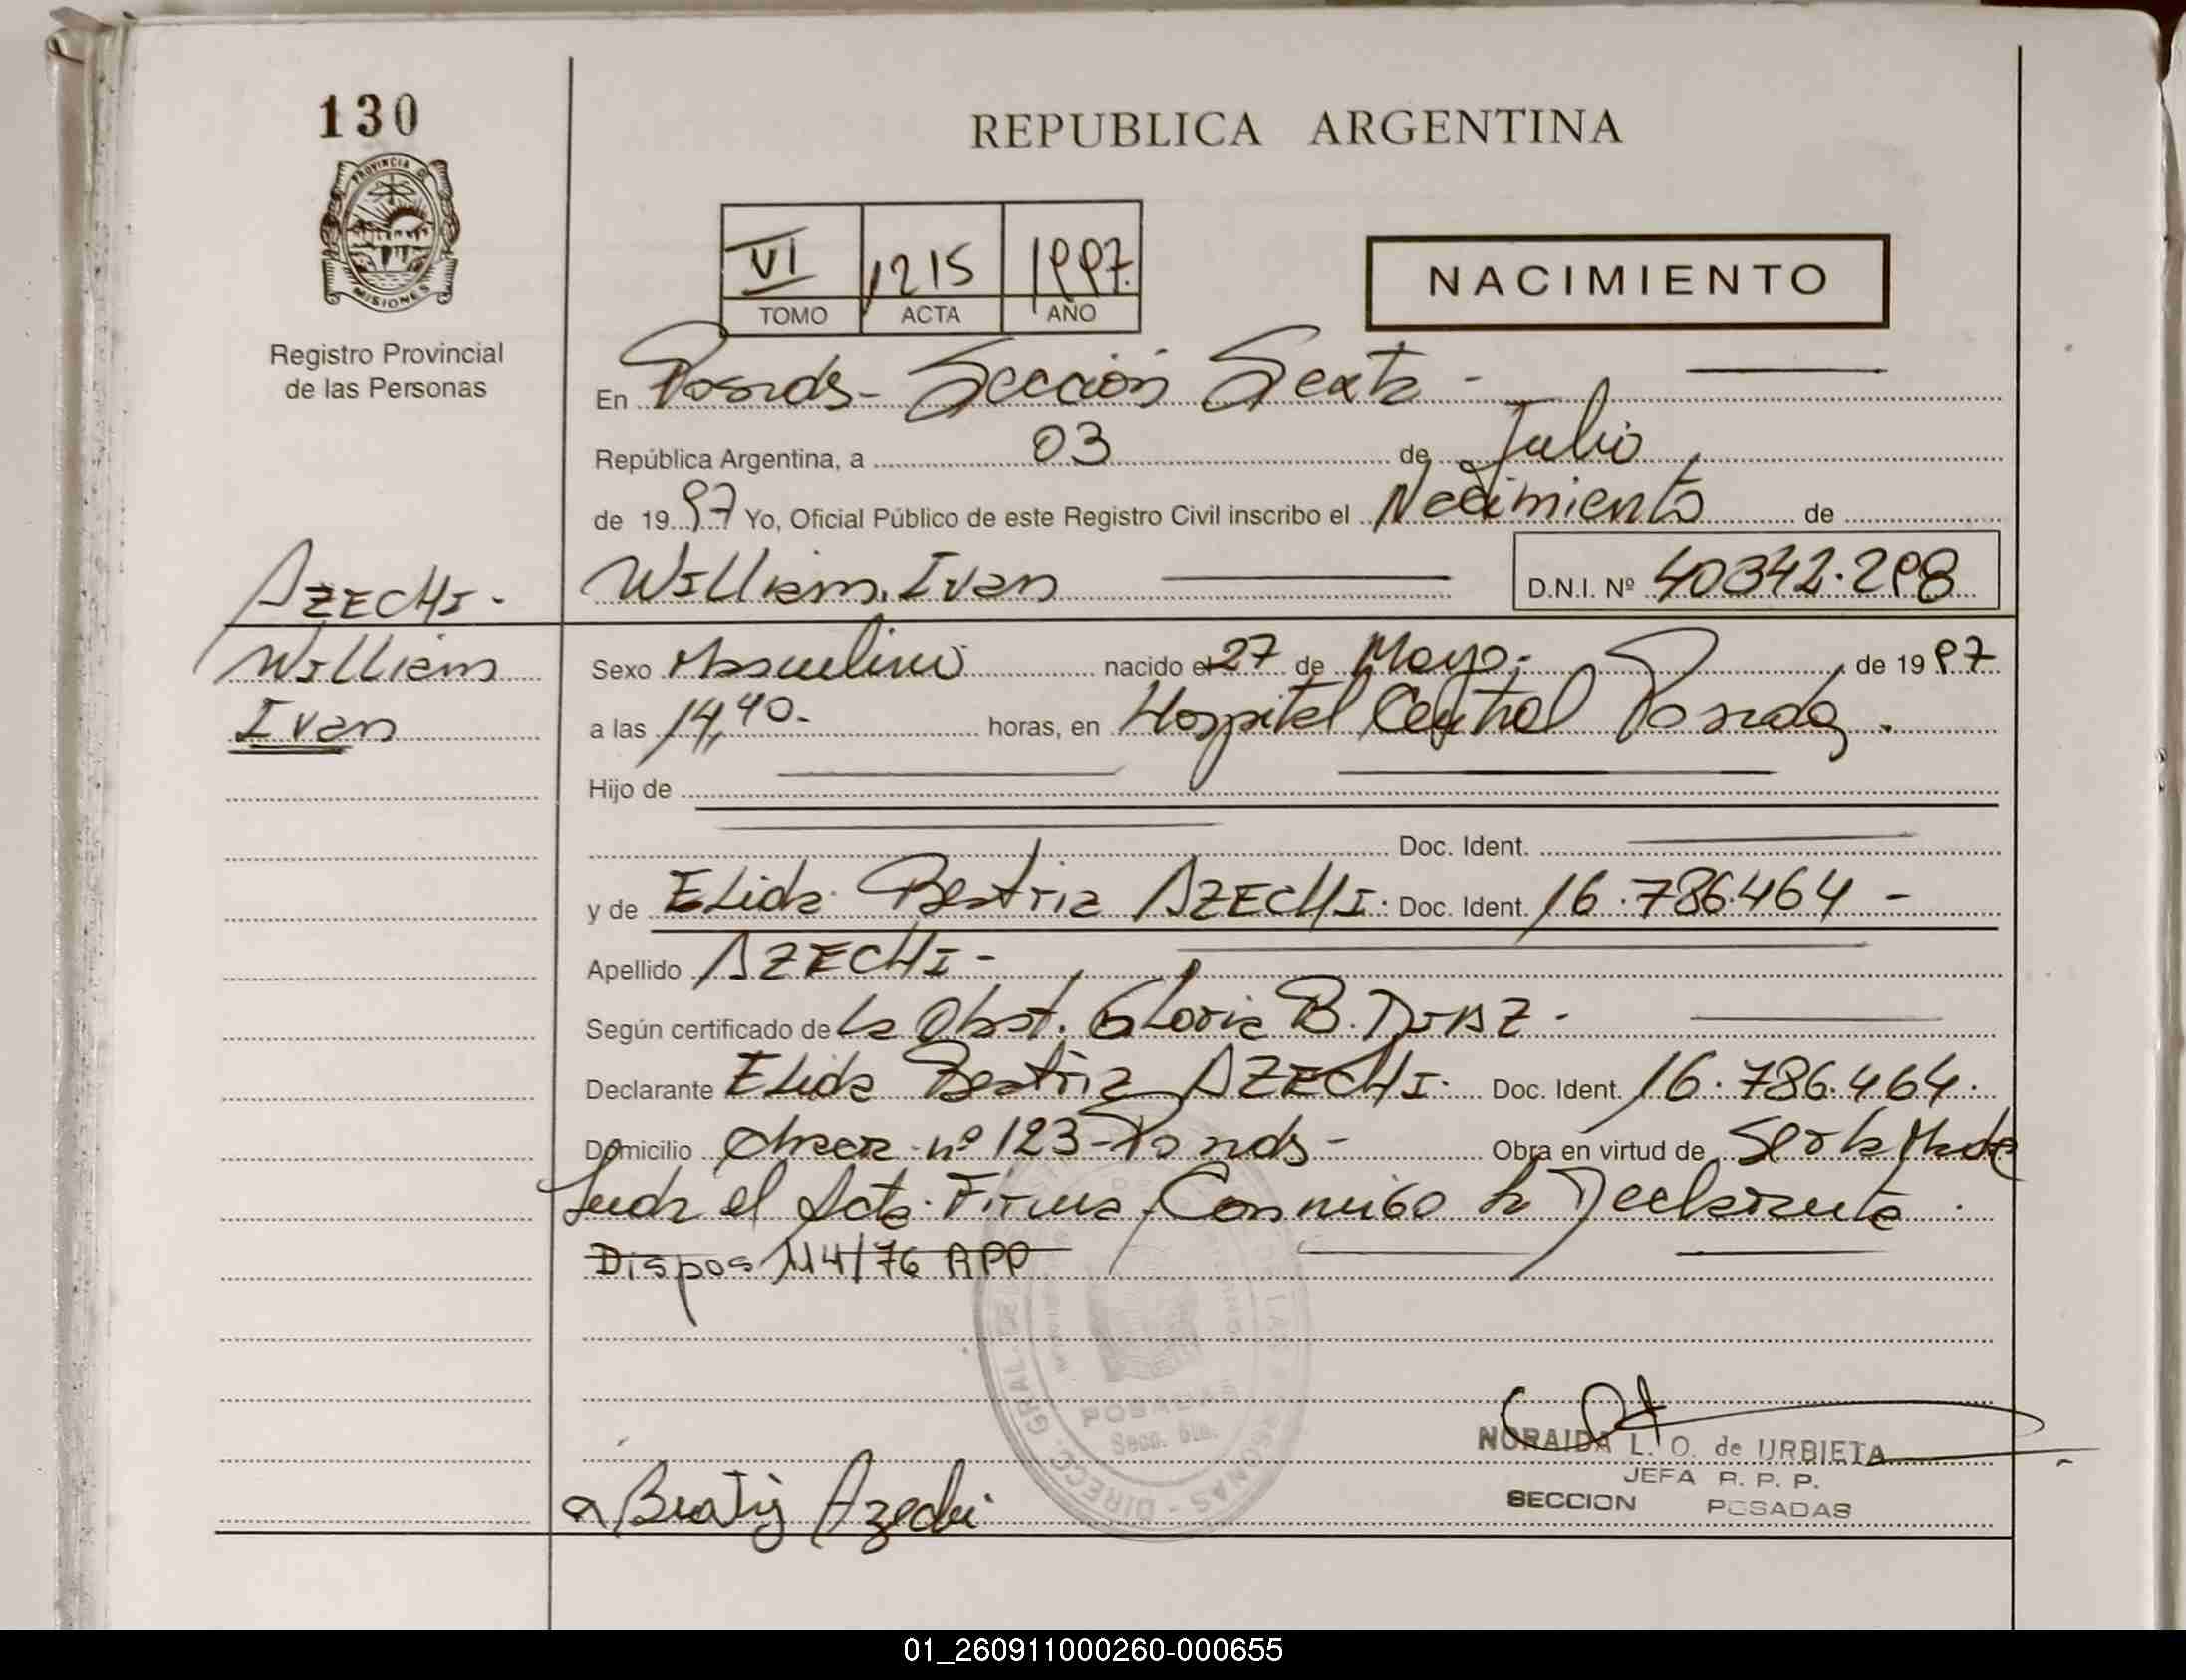 130
PROVINCIA DE
MISIONES
Registro Provincial
de las Personas
REPUBLICA ARGENTINA
VI 1215 1997.
TOMO ACTA AÑO
NACIMIENTO
En Posadas - Sección Sexta -
República Argentina, a 03 de Julio
de 1997 Yo, Oficial Público de este Registro Civil inscribo el Nacimiento de
William Ivan D.N.I. Nº 40342.298
AZECHI -
William
Ivan
Sexo Masculino nacido el 27 de Mayo de 1997
a las 14,40 - horas, en Hospital Central Posadas.
Hijo de
Doc. Ident.
y de Elida Beatriz AZECHI Doc. Ident. 16.786.464 -
Apellido AZECHI -
Según certificado de la Obst. Gloria B. DIAZ -
Declarante Elida Beatriz AZECHI Doc. Ident. 16.786.464.
Domicilio nº 123 - Posadas - Obra en virtud de Ser la Madre
el Acta. Firma Conmigo la Declarante.
Dispos 114/76 RPP
POSADAS
Secc. 6ta.
NORAIDA L. O. de URBIETA
JEFA R. P. P.
SECCION POSADAS
Beatriz Azechi
01_260911000260-000655